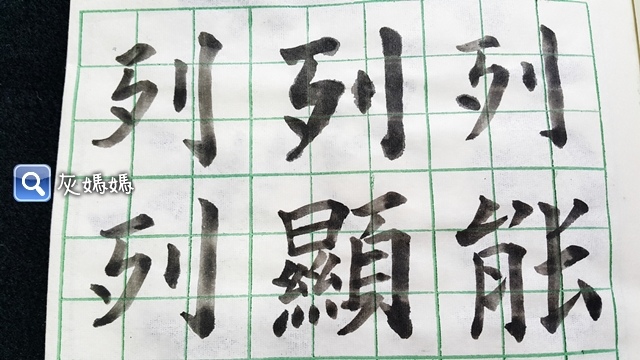 列列列
列顯能
灰媽媽